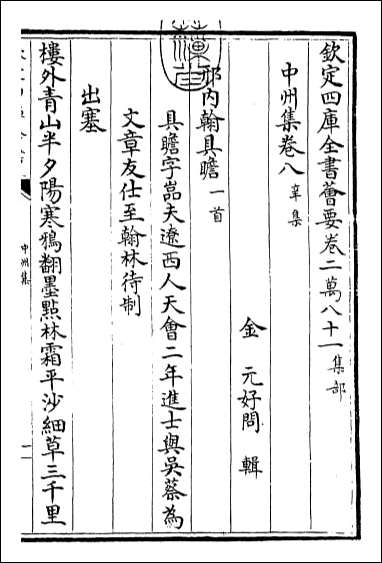 欽定四庫全書薈要卷二萬八十一集部
中州集卷八辛集
金 元好問 輯
邢內翰具瞻一首
具瞻字嵓夫遼西人天會二年進士與吳蔡為
文章友仕至翰林待制
出塞
樓外青山半夕陽寒鴉翻墨點林霜平沙細草三千里
中州集
一